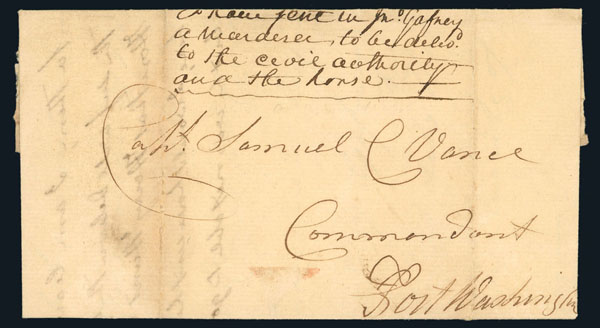 I have sent in Jno. Gafney
a murderer, to be deliv.d
to the cevil authority
and the horse.
Capt. Samuel C Vance
Commandant
Fort Washington